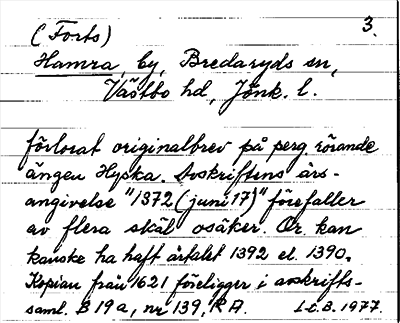 (Forts) 3.
Hamra, by, Bredaryds sn,
Västbo hd, Jönk. l.
förlorat originalbrev på perg. rörande
ängen Hyska. Avskriftens års-
angivelse "1372 (juni 17)" förefaller
av flera skäl osäker. Or. kan
kanske ha haft årtalet 1392 el. 1390.
Kopian från 1621 föreligger i avskrifts-
saml. B 19a, nr 139, RA. L-E.B. 1977.